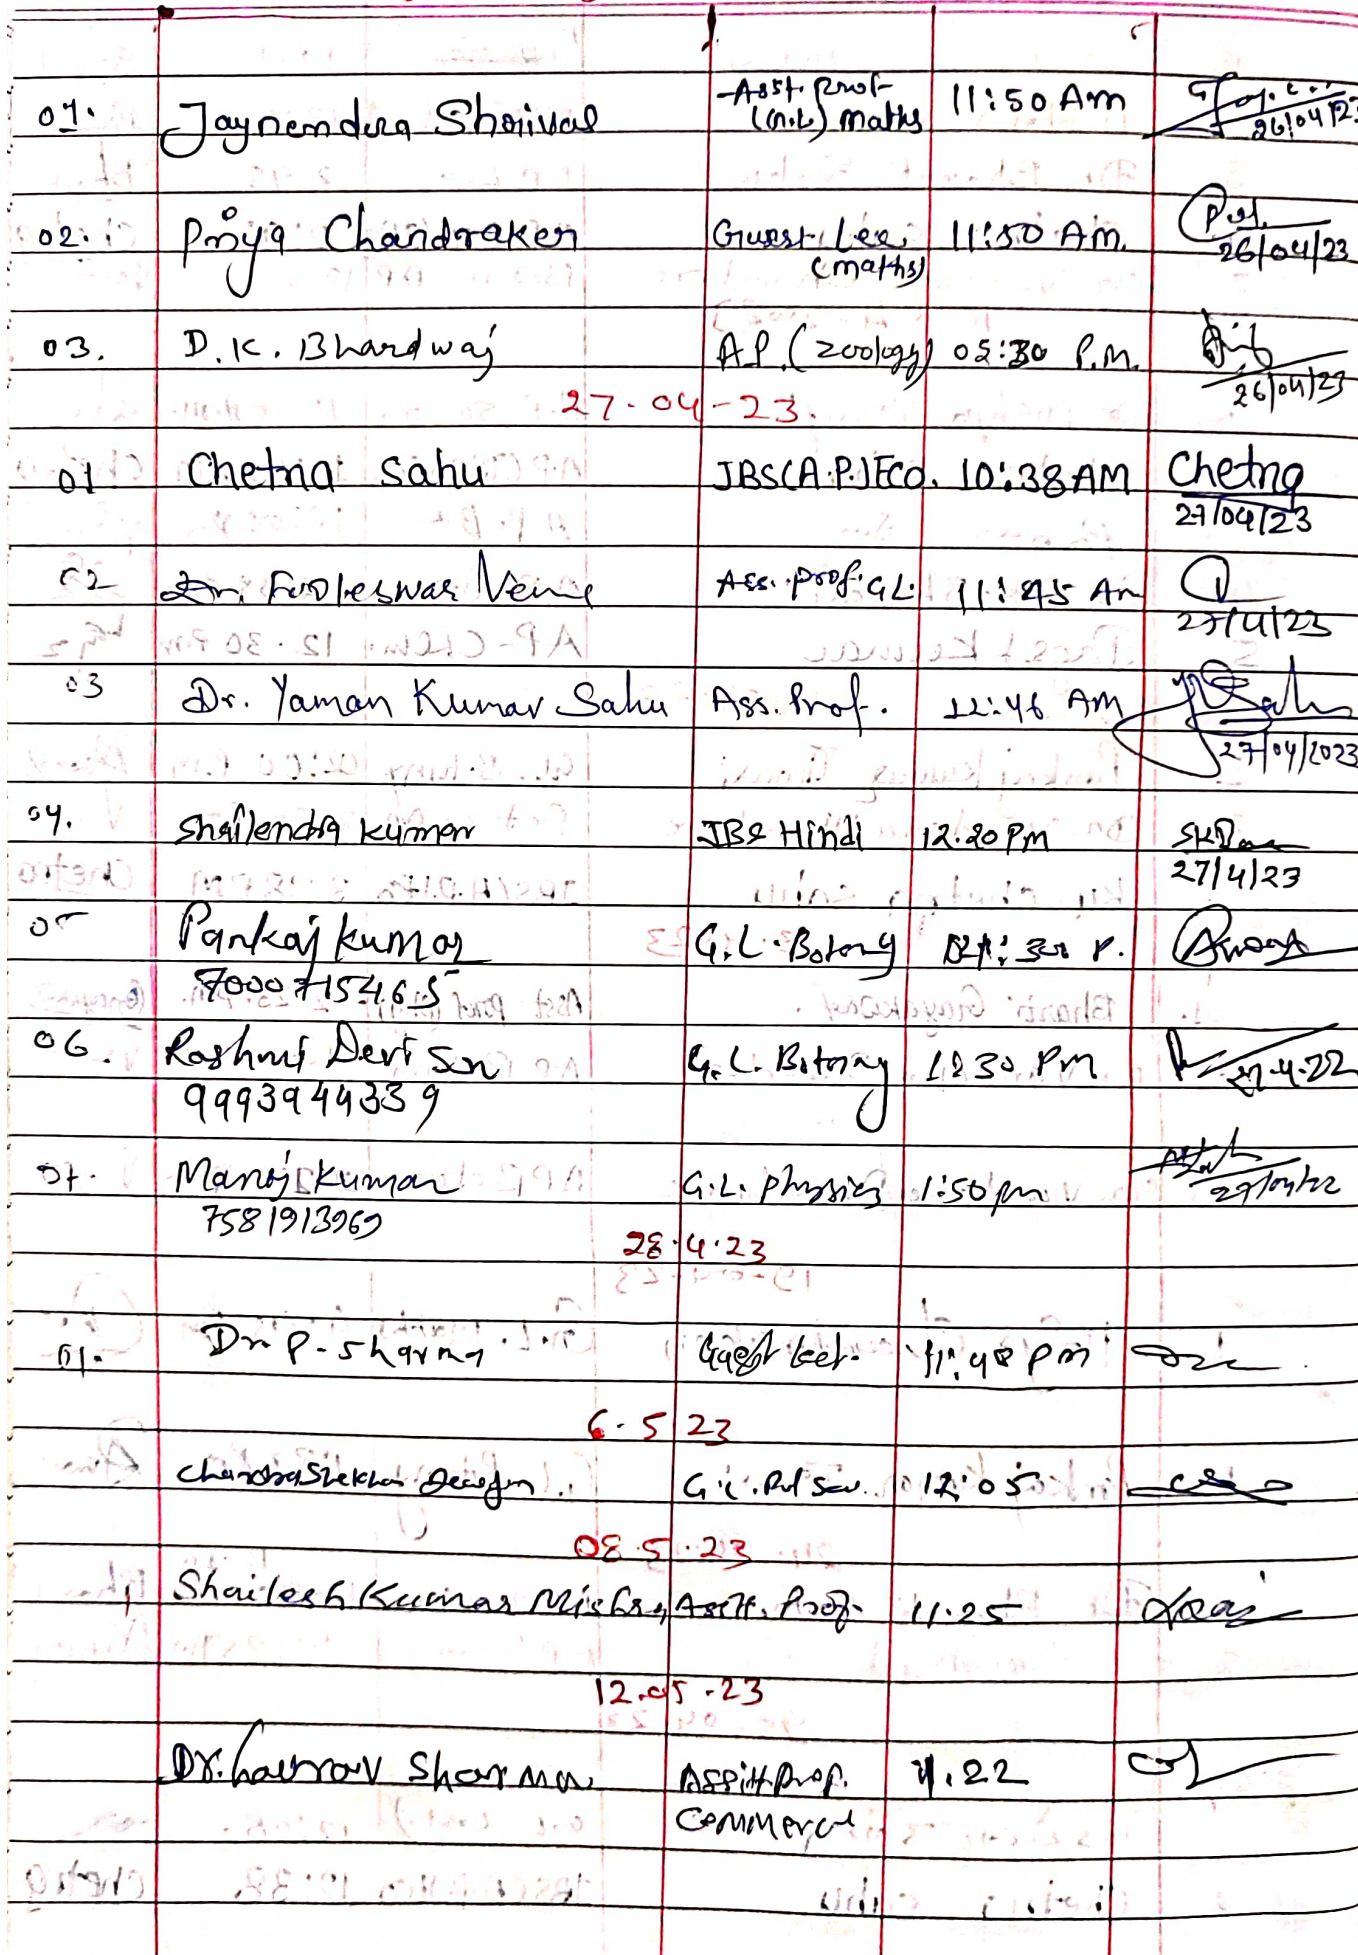 01. Jaynendra Shrivas Asst. Prof. (G.L) maths 11:50 Am 26/04/23
02. Priya Chandraker Guest Lec. (maths) 11:50 Am. 26/04/23
03. D.K. Bhardwaj A.P. (Zoology) 05:30 P.M. 26/04/23
27-04-23.
01 Chetna Sahu JBS(A.P.)Eco. 10:38 AM Chetna
27/04/23
02 Dr. Ass. Prof. G.L. 11:45 Am
27/4/23
03 Dr. Yaman Kumar Sahu Ass. Prof. 11:46 AM Sahu
27/04/2023
04. Shailendra Kumar JBS Hindi 12.20 Pm
27/4/23
05 Pankaj Kumar G.L. Botany
7000715465
06. Rashmi Devi G.L. Botany 1230 Pm 27-4-22
9993944339
07. Manoj Kumar G.L. Physics 1:50 pm
7581913969
28.4.23
01. Dr. P. Sharma Guest Lect. 11:48 pm
6.5.23
Chandrashekhar G.L. Pol Sci. 12:05
08.5.23
1 Shailesh Kumar Mishra Asstt. Prof. 11.25
12.05.23
Dr. Gaurav Sharma Assitt. Prof. 4.22
Commerce